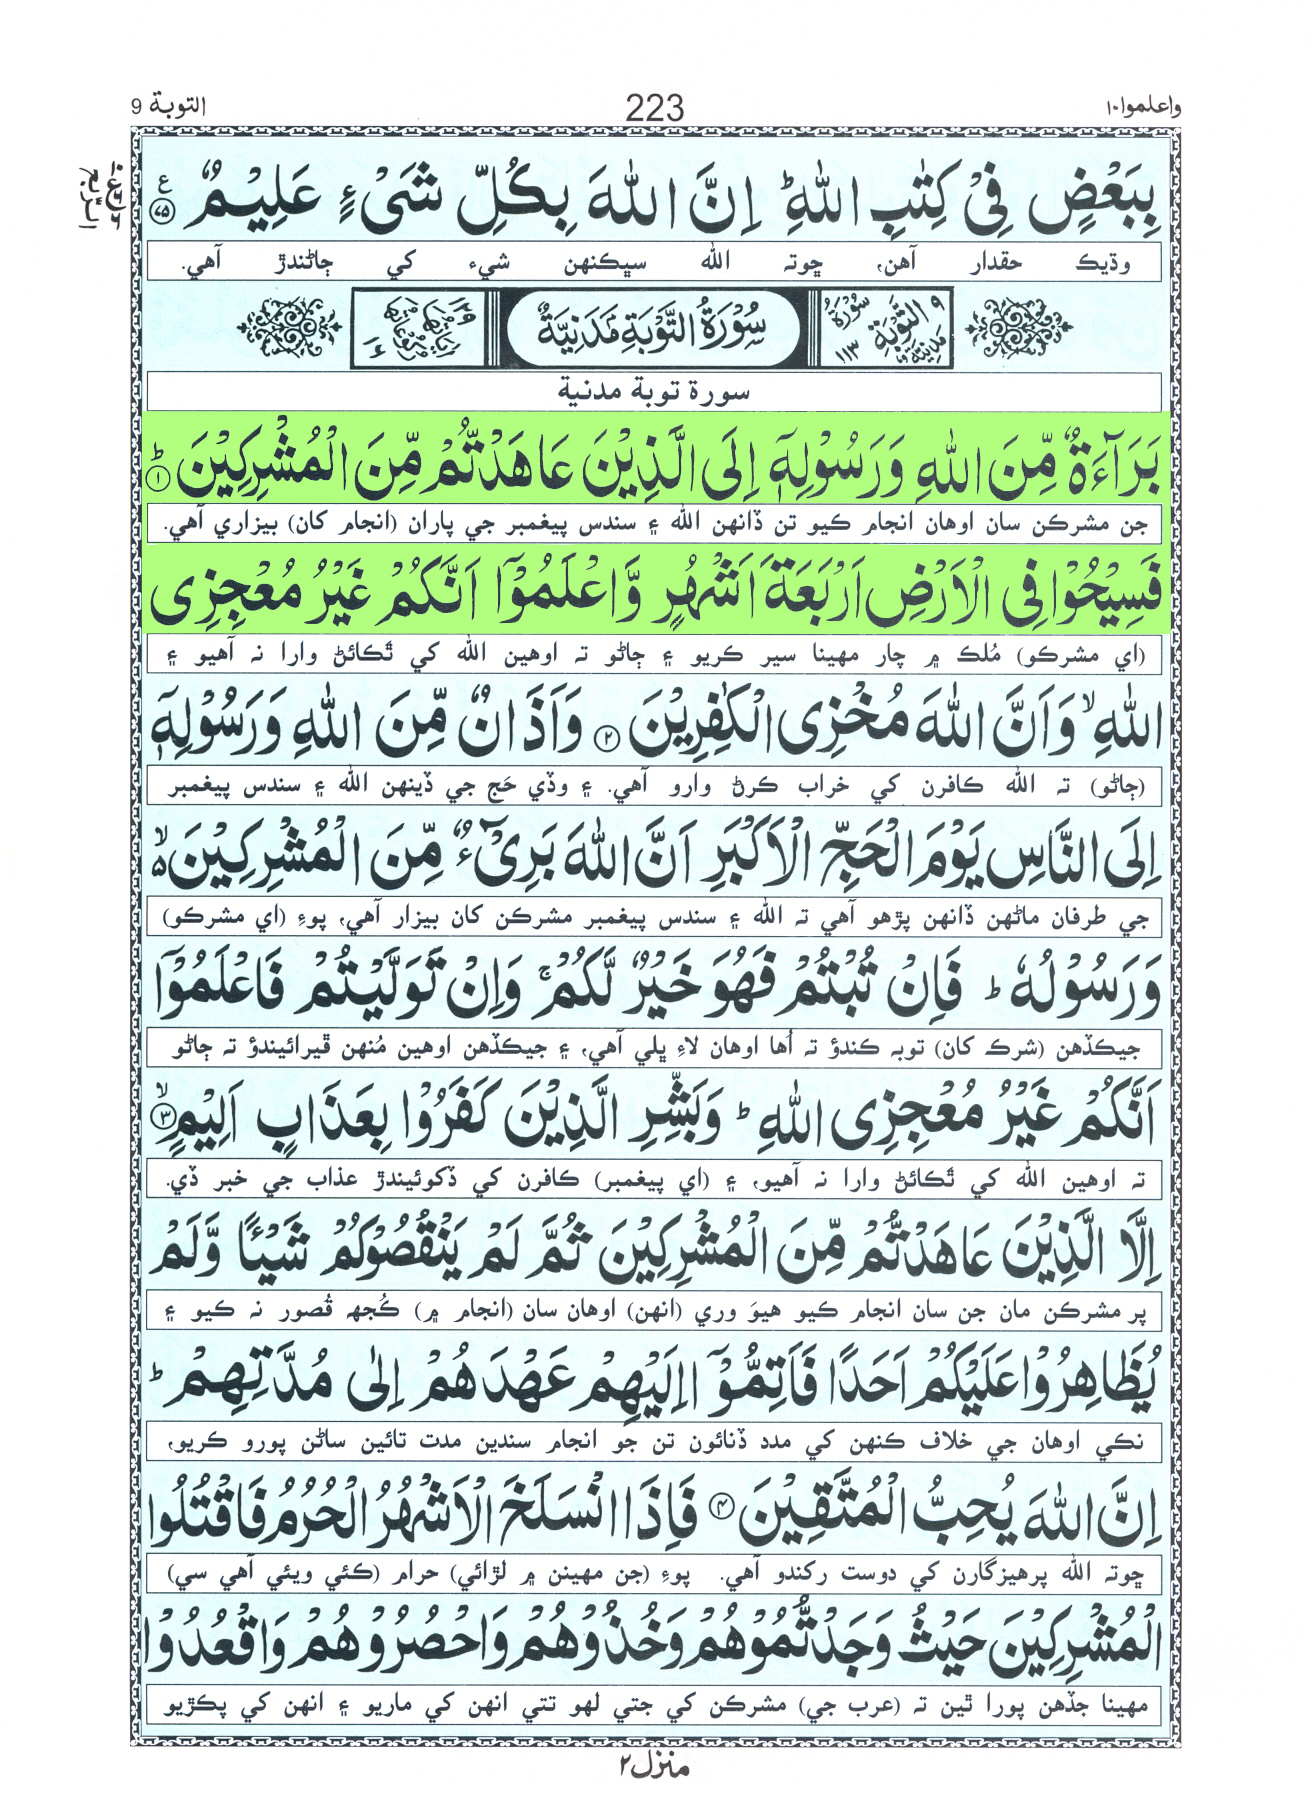 واعلموا١٠ 223 التوبة 9
بِبَعْضٍ فِيْ كِتٰبِ اللهِ ؕ اِنَّ اللهَ بِكُلِّ شَيْءٍ عَلِيْمٌ ﴿۷۵﴾ ع
وڌيڪ حقدار آهن، ڇوتہ الله سڀڪنهن شيء کي ڄاڻندڙ آهي.
سُوْرَةُ التَّوْبَةِ مَدَنِيَّةٌ
سورة توبة مدنية
بَرَآءَةٌ مِّنَ اللهِ وَرَسُوْلِهٖٓ اِلَى الَّذِيْنَ عَاهَدْتُّمْ مِّنَ الْمُشْرِكِيْنَ ؕ ﴿۱﴾
جن مشرڪن سان اوهان انجام ڪيو تن ڏانهن الله ۽ سندس پيغمبر جي پاران (انجام کان) بيزاري آهي.
فَسِيْحُوْا فِي الْاَرْضِ اَرْبَعَةَ اَشْهُرٍ وَّاعْلَمُوْٓا اَنَّكُمْ غَيْرُ مُعْجِزِي
(اي مشرڪو) مُلڪ ۾ چار مهينا سير ڪريو ۽ ڄاڻو تہ اوهين الله کي ٿڪائڻ وارا نہ آهيو ۽
اللهِ ۙ وَاَنَّ اللهَ مُخْزِي الْكٰفِرِيْنَ ﴿۲﴾ وَاَذَانٌ مِّنَ اللهِ وَرَسُوْلِهٖٓ
(ڄاڻو) تہ الله ڪافرن کي خراب ڪرڻ وارو آهي. ۽ وڏي حَج جي ڏينهن الله ۽ سندس پيغمبر
اِلَى النَّاسِ يَوْمَ الْحَجِّ الْاَكْبَرِ اَنَّ اللهَ بَرِيْٓءٌ مِّنَ الْمُشْرِكِيْنَ ۙ۵
جي طرفان ماڻهن ڏانهن پڙهو آهي تہ الله ۽ سندس پيغمبر مشرڪن کان بيزار آهي، پوءِ (اي مشرڪو)
وَرَسُوْلُهٗ ؕ فَاِنْ تُبْتُمْ فَهُوَ خَيْرٌ لَّكُمْ ۚ وَاِنْ تَوَلَّيْتُمْ فَاعْلَمُوْٓا
جيڪڏهن (شرڪ کان) توبہ ڪندؤ تہ اُها اوهان لاءِ ڀلي آهي، ۽ جيڪڏهن اوهين مُنهن ڦيرائيندؤ تہ ڄاڻو
اَنَّكُمْ غَيْرُ مُعْجِزِي اللهِ ؕ وَبَشِّرِ الَّذِيْنَ كَفَرُوْا بِعَذَابٍ اَلِيْمٍ ۙ ﴿۳﴾
تہ اوهين الله کي ٿڪائڻ وارا نہ آهيو، ۽ (اي پيغمبر) ڪافرن کي ڏکوئيندڙ عذاب جي خبر ڏي.
اِلَّا الَّذِيْنَ عَاهَدْتُّمْ مِّنَ الْمُشْرِكِيْنَ ثُمَّ لَمْ يَنْقُصُوْكُمْ شَيْـًٔا وَّلَمْ
پر مشرڪن مان جن سان انجام ڪيو هيوَ وري (انهن) اوهان سان (انجام ۾) ڪُجهہ قُصور نہ ڪيو ۽
يُظَاهِرُوْا عَلَيْكُمْ اَحَدًا فَاَتِمُّوْٓا اِلَيْهِمْ عَهْدَهُمْ اِلٰى مُدَّتِهِمْ ؕ
نڪي اوهان جي خلاف ڪنهن کي مدد ڏنائون تن جو انجام سندين مدت تائين ساڻن پورو ڪريو،
اِنَّ اللهَ يُحِبُّ الْمُتَّقِيْنَ ﴿۴﴾ فَاِذَا انْسَلَخَ الْاَشْهُرُ الْحُرُمُ فَاقْتُلُوا
ڇوتہ الله پرهيزگارن کي دوست رکندو آهي. پوءِ (جن مهينن ۾ لڙائي) حرام (ڪئي ويئي آهي سي)
الْمُشْرِكِيْنَ حَيْثُ وَجَدْتُّمُوْهُمْ وَخُذُوْهُمْ وَاحْصُرُوْهُمْ وَاقْعُدُوْا
مهينا جڏهن پورا ٿين تہ (عرب جي) مشرڪن کي جتي لهو تتي انهن کي ماريو ۽ انهن کي پڪڙيو
منزل۲